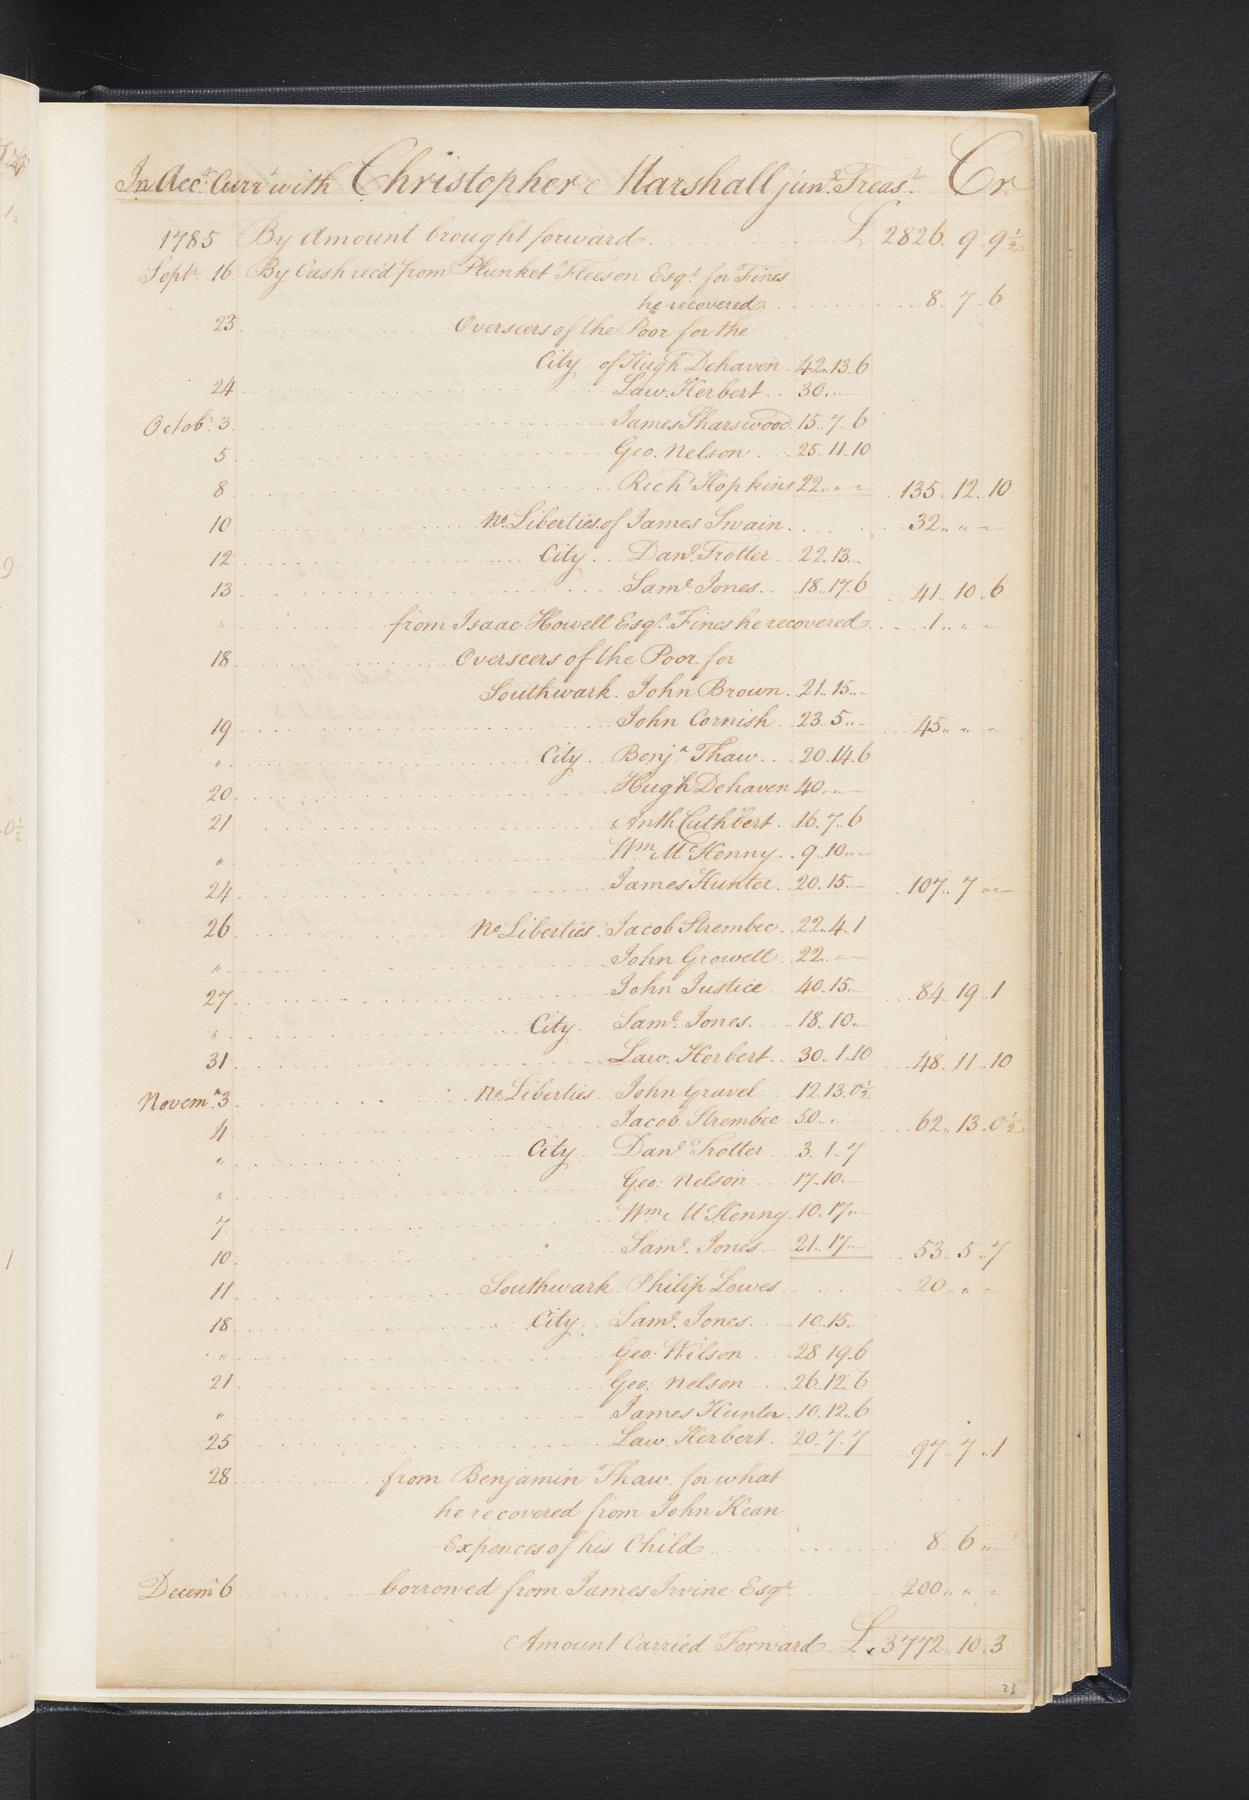 In Acct. Currt. with Christopher Marshall junr. Treast. Cr
1785 By Amount brought forward £ 2826. 9. 9½
Septr. 16 By Cash rec'd from Plunket Fleeson Esqr. for Fines
he recovered 8. 7. 6
23 Overseers of the Poor for the
City of Hugh Dehaven 42.13.6
24 Law. Herbert 30. " –
Octobr. 3 James Sharswood 15..7..6
5 Geo. Nelson 25..11..10
8 Richd. Hopkins 22. " – 135. 12. 10
10 No. Liberties of James Swain 32. " –
12 City Danl. Trotter 22.13.–
13 Saml. Jones 18.17.6 41. 10. 6
" from Isaac Howell Esqr. Fines he recovered 1. " –
18 Overseers of the Poor for
Southwark. John Brown. 21..15..–
19 John Cornish 23.5..– 45. " –
" City Benja. Thaw 20.14.6
20 Hugh Dehaven 40. " –
21 Anth. Cuthbert 16..7..6
" Wm. McKenny 9..10..–
24 James Hunter 20.15.– 107. 7 " –
26 No. Liberties Jacob Strembec 22..4.1
" John Growell 22. " –
27 John Justice 40.15.– 84. 19. 1
" City Saml. Jones 18..10.–
31 Law. Herbert 30..1.10 48. 11. 10
Novemr. 3 No. Liberties John Gravel 12.13.0½
4 Jacob Strembec 50. " 62. 13. 0½
" City Danl. Trotter 3..1..7
" Geo: Nelson 17..10.–
7 Wm. McKenny 10.17.–
10 Saml. Jones 21..17.– 53. 5. 7
11 Southwark Philip Lowes 20. " –
18 City Saml. Jones 10.15.–
" Geo: Wilson 28.19.6
21 Geo: Nelson 26..12..6
" James Hunter 10..12..6
25 Law. Herbert 20..7..7 97. 7. 1
28 from Benjamin Thaw for what
he recovered from John Kean
Expences of his Child 8. 6 "
Decemr. 6 borrowed from James Irvine Esqr. 200. " "
Amount Carried Forward £ 3772. 10. 3
23